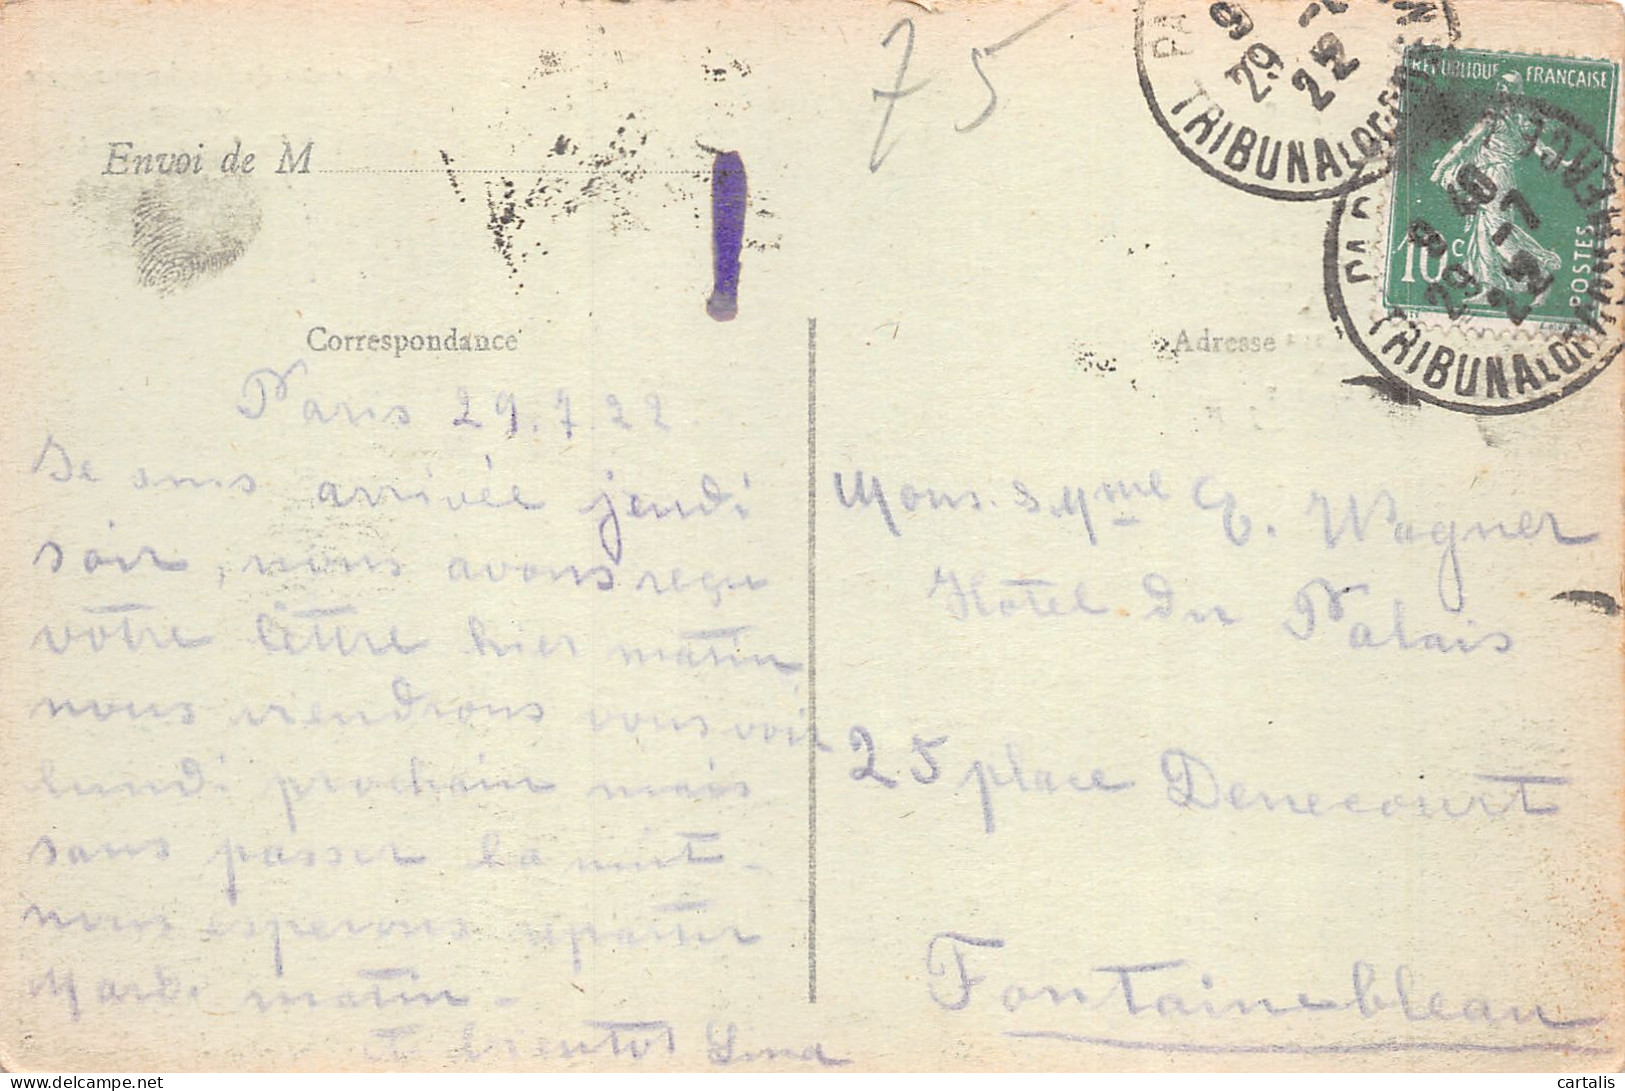 75
RÉPUBLIQUE FRANÇAISE
10c
POSTES
9
29 -7
22
TRIBUNAL DE COMMERCE
9 40
29 -7
22
TRIBUNAL DE COMMERCE
Envoi de M
Correspondance
Paris 29.7.22
Je suis arrivée jeudi
soir, nous avons reçu
votre lettre hier matin,
nous viendrons vous voir
lundi prochain mais
sans passer la nuit -
nous esperons repartir
Mardi matin -
à bientot Lina
Adresse
Mons. & Mme E. Wagner
Hôtel du Palais
25 place Denecourt
Fontainebleau
cartalis